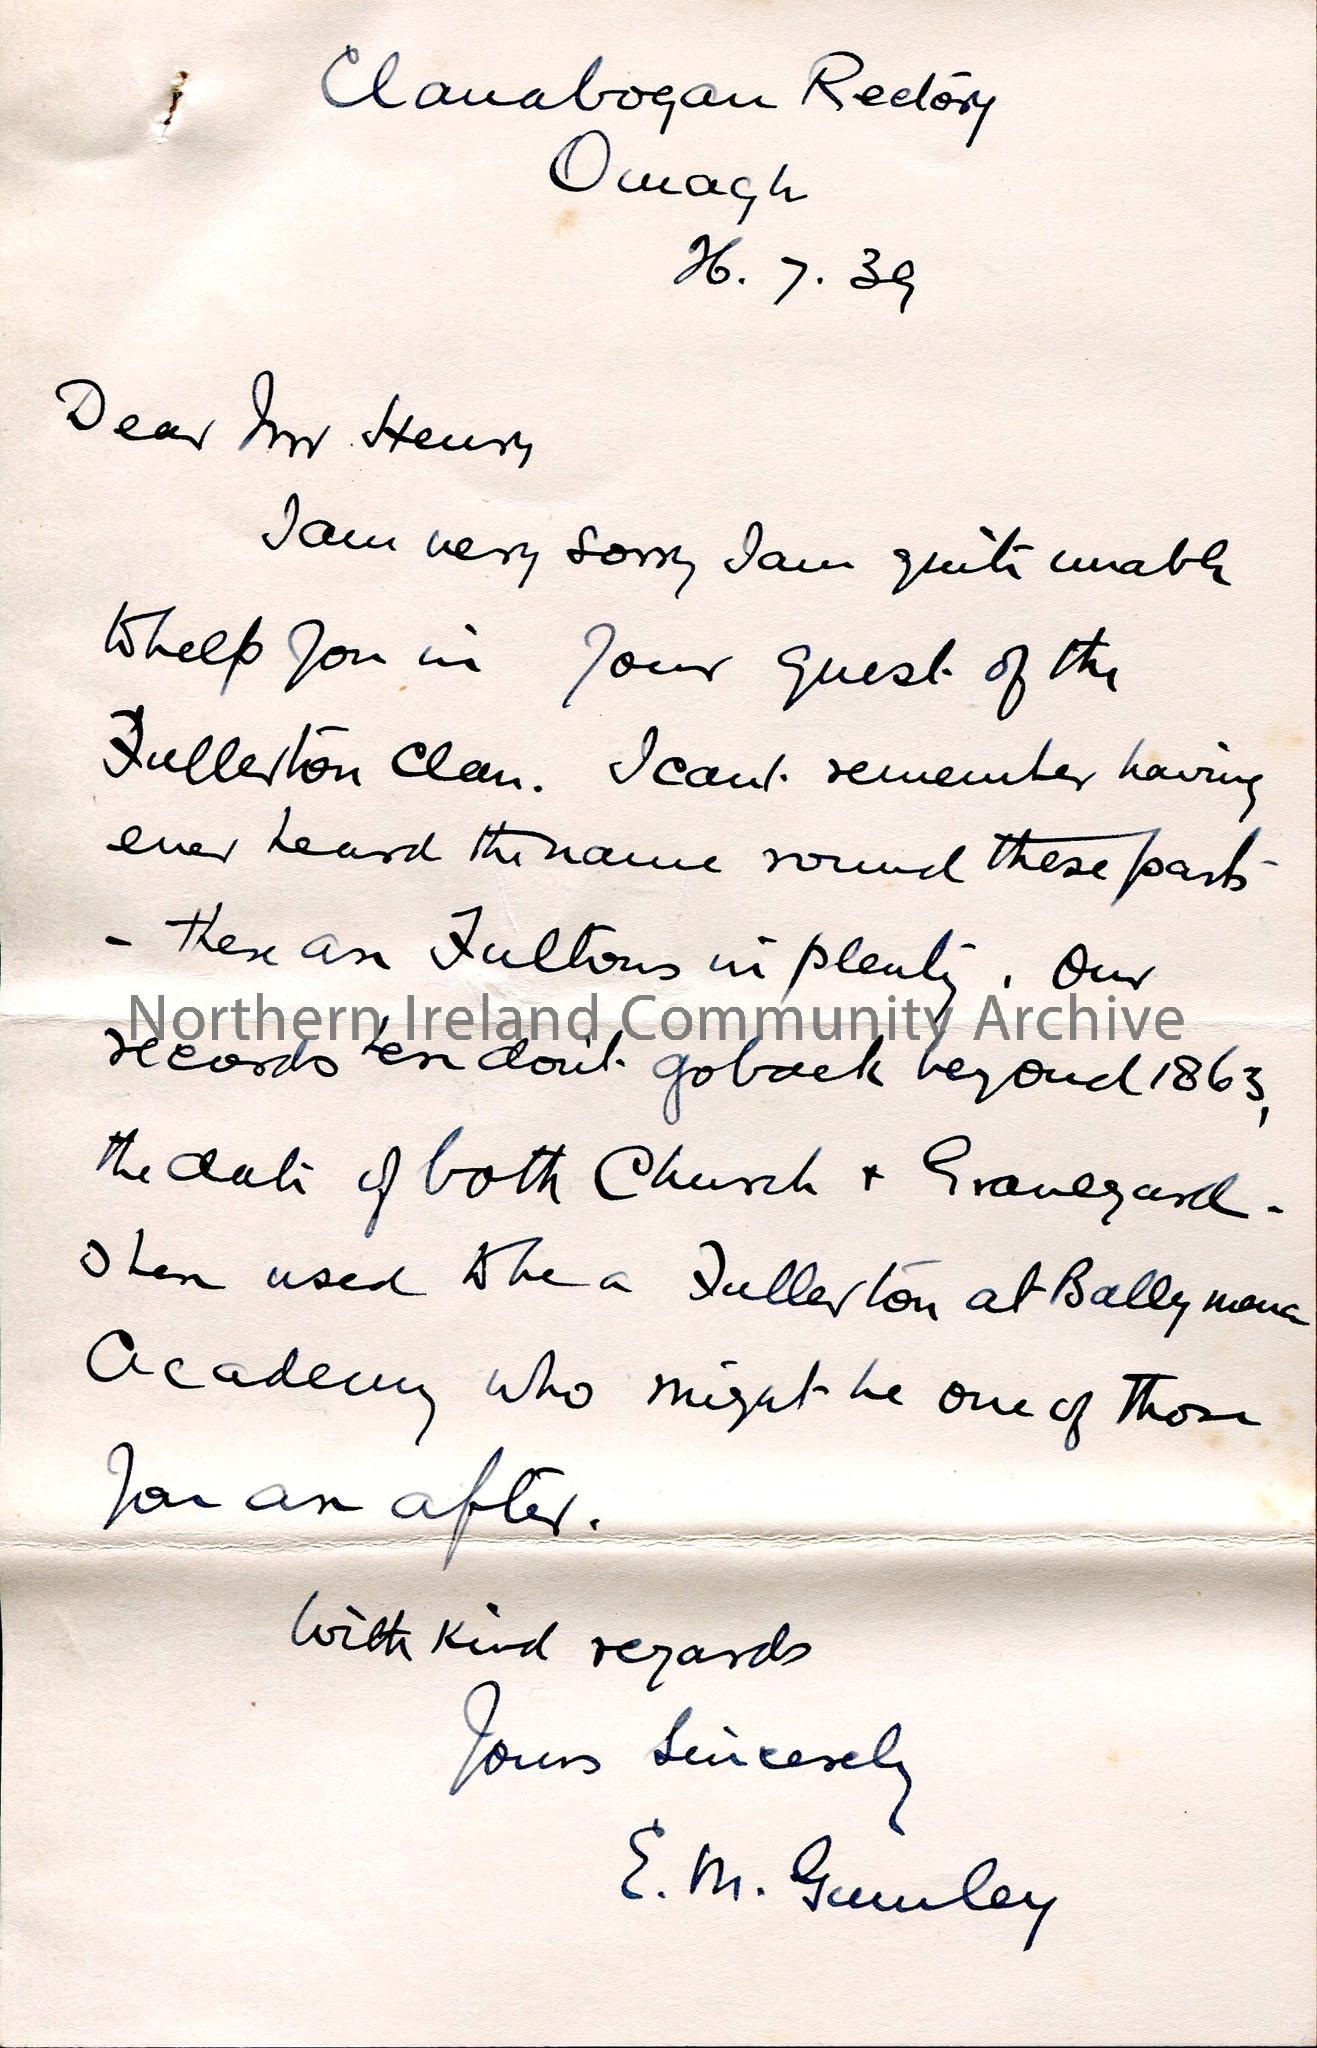 Clanabogan Rectory
Omagh
26. 7. 39
Dear Mr Henry
I am very sorry I am quite unable
to help you in your quest of the
Fullerton Clan. I cant remember having
ever heard the name round these parts
- there are Fultons in plenty. Our
Northern Ireland Community Archive
records here don't go back beyond 1863,
the date of both Church + Graveyard -
There used to be a Fullerton at Ballymena
Academy who might be one of those
you are after.
With kind regards
Yours sincerely
E. M. Gumley